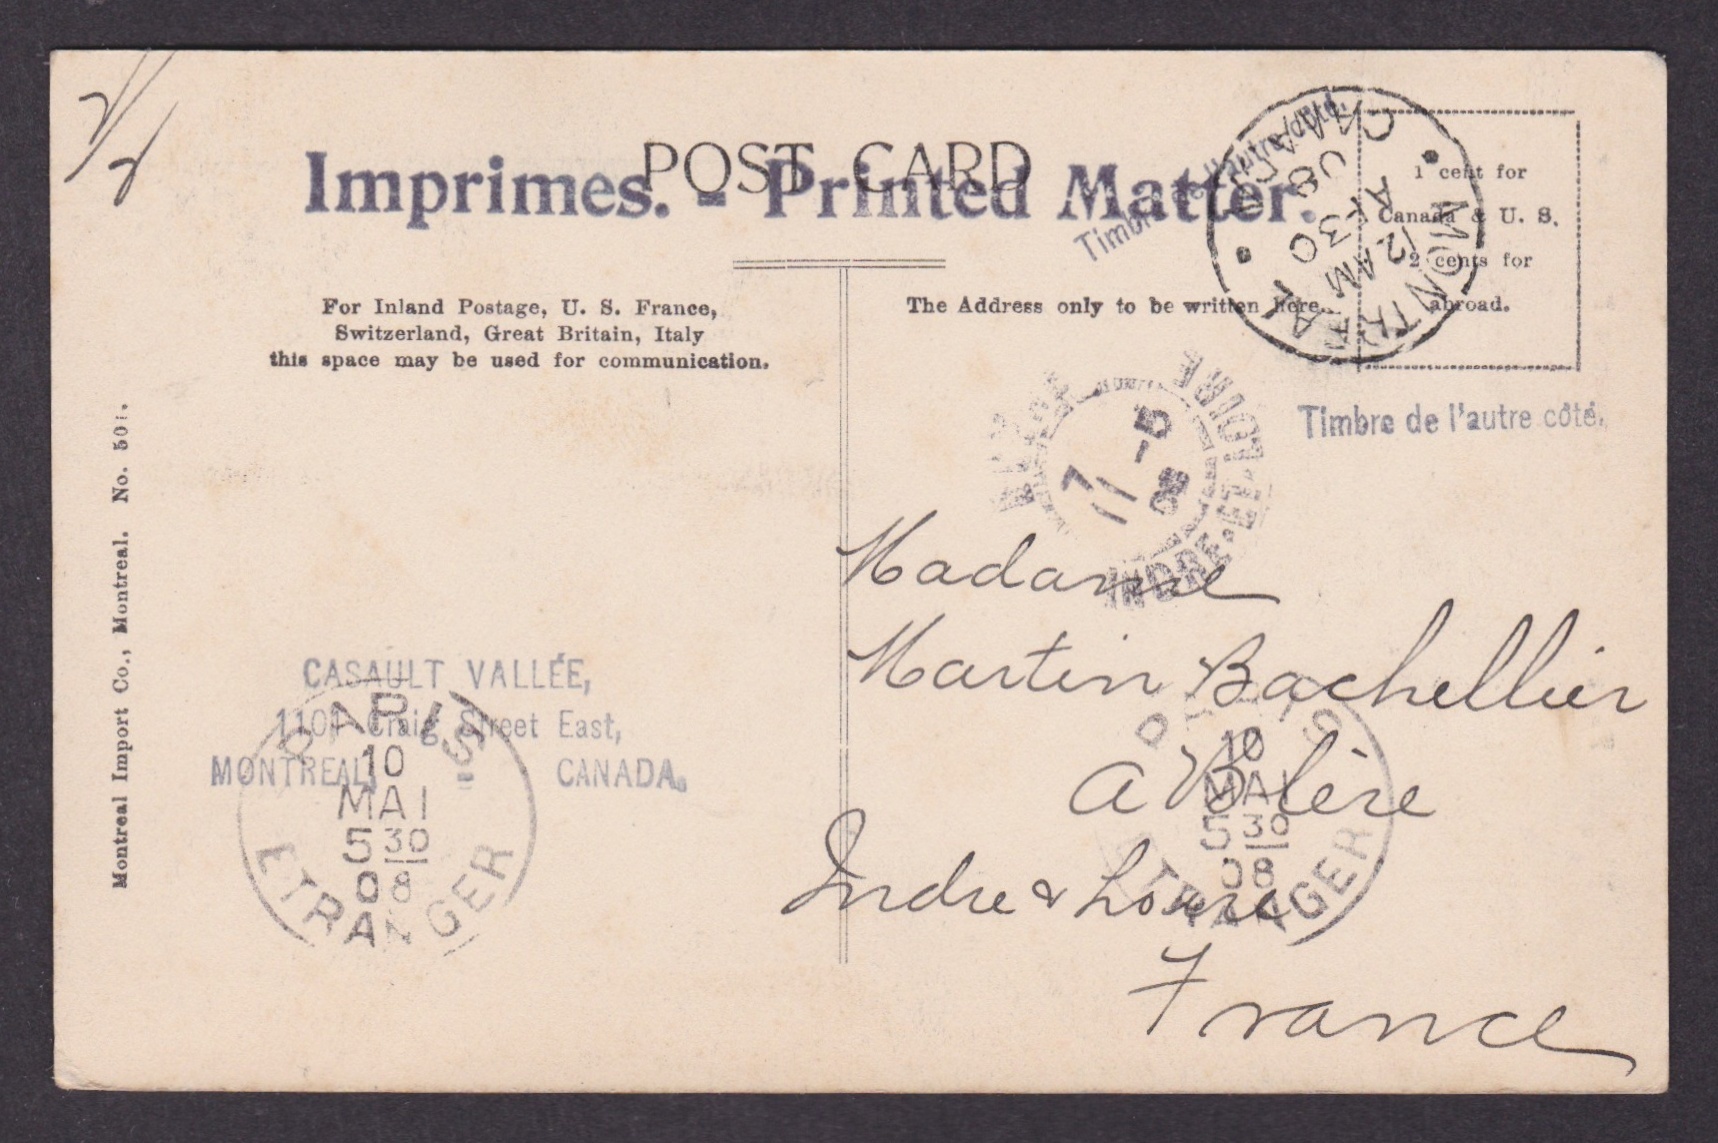 POST CARD
Imprimes. - Printed Matter.
Timbre de l'autre côté.
MONTREAL
12 AM
AP 30
08
CANADA
1 cent for
Canada & U. S.
2 cents for
abroad.
For Inland Postage, U. S. France,
Switzerland, Great Britain, Italy
this space may be used for communication.
The Address only to be written here.
Timbre de l'autre côté.
INDRE-ET-LOIRE
7 - 5
08
Montreal Import Co., Montreal. No. 501.
Madame
Martin Bachellier
a Blère
Indre & Loire
France
CASAULT VALLÉE,
1101 Craig Street East,
MONTREAL, CANADA.
PARIS
10
MAI
5 30
08
ETRANGER
PARIS
10
MAI
5 30
08
ETRANGER